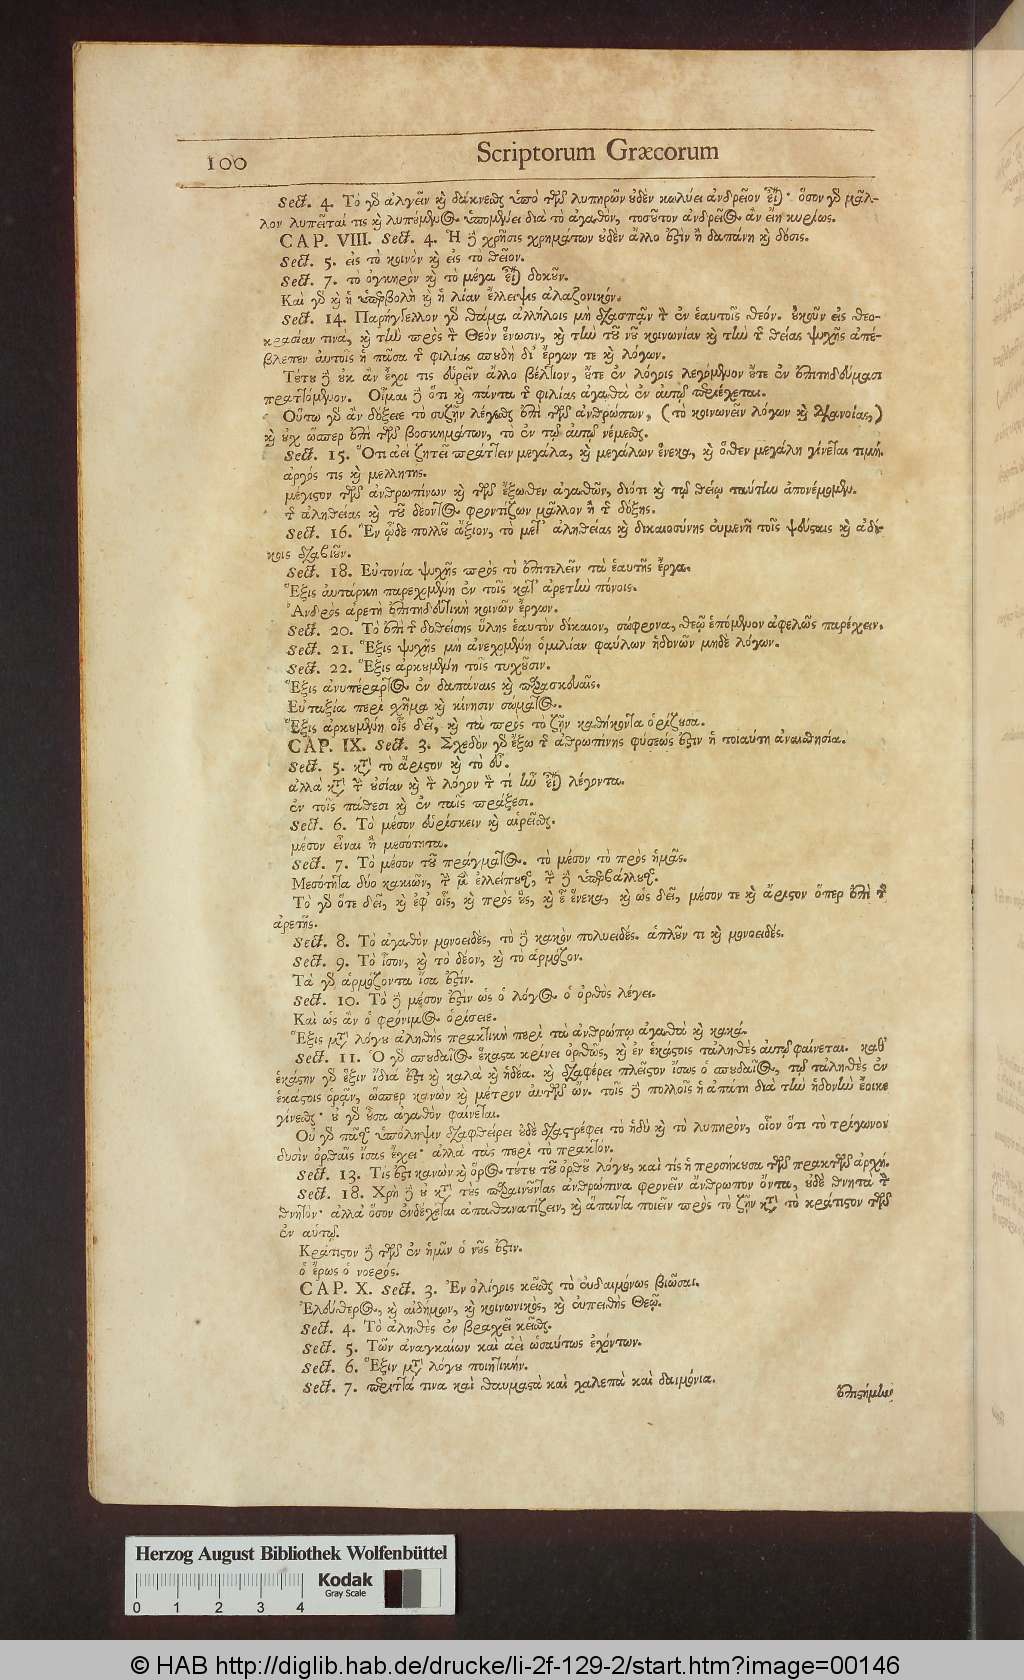 100
Scriptorum Græcorum
Sect. 4. Τὸ γὸ ἀλγεῖν κỳ δάκνεσθς ὑπὸ τῶν λυπηρῶν ὐδὲν κωλύει ἀνδρεῖον εἶ) · ὅσον γὸ μᾶλ-
λον λυπεῖταί τις κỳ λυπούμενος ὑπομένει διὰ τὸ ἀγαθὸν, τοσοῦτον ἀνδρεῖος ἂν εἴη κυρίως.
CAP. VIII. Sect. 4. Ἡ ϳ χρῆσις χρημάτων ὐδὲν ἄλλο ἐςὶν ἢ δαπάνη κỳ δόσις.
Sect. 5. εἰς τὸ κοινὸν κỳ εἰς τὸ θεῖον.
Sect. 7. τὸ ὀγκηρὸν κỳ τὸ μέγα εἶ) δοκοῦν.
Καὶ γὸ κỳ ἡ ὑπερβολὴ κỳ ἡ λίαν ἔλλειψις ἀλαζονικόν.
Sect. 14. Παρήγγελλον γὸ θάμα ἀλλήλοις μὴ διασπᾷν τ ἐν ἑαυτοῖς θεόν. ὐκοῦν εἰς θεο-
κρασίαν τινὰ, κỳ τὴν πρὸς τ Θεὸν ἕνωσιν, κỳ τὴν τοῦ νοῦ κοινωνίαν κỳ τὴν τ θείας ψυχῆς ἀπέ-
βλεπεν αὐτοῖς ἡ πᾶσα τ φιλίας σπουδὴ δι᾽ ἔργων τε κỳ λόγων.
Τύτυ ϳ ὐκ ἂν ἔχοι τις εὑρεῖν ἄλλο βέλτιον, ὔτε ἐν λόγοις λεγόμενον ὔτε ἐν ἐπιτηδεύμασι
πρατ]όμενον. Οἶμαι ϳ ὅτι κỳ πάντα τ φιλίας ἀγαθὰ ἐν αὐτῷ περιέχεται.
Οὕτω γὸ ἂν δόξειε τὸ συζῆν λέγεσθς ἐπὶ τῶν ἀνθρώπων, (τὸ κοινωνεῖν λόγων κỳ διανοίας,)
κỳ ὐχ ὥσπερ ἐπὶ τῶν βοσκημάτων, τὸ ἐν τῷ αὐτῷ νέμεσθς.
Sect. 15. Ὅτι ἀεὶ ζητεῖ πράτ]ειν μεγάλα, κỳ μεγάλων ἕνεκα, κỳ ὅθεν μεγάλη γίνεται τιμή.
ἀργός τις κỳ μελλητής.
μέγιςον τῶν ἀνθρωπίνων κỳ τῶν ἔξωθεν ἀγαθῶν, διότι κỳ τῷ θείῳ ταύτην ἀπονέμομεν.
τ ἀληθείας κỳ τοῦ δέοντος φροντίζων μᾶλλον ἢ τ δόξης.
Sect. 16. Ἓν ὧδε πολλοῦ ἄξιον, τὸ μετ᾽ ἀληθείας κỳ δικαιοσύνης εὐμενῆ τοῖς ψεύςαις κỳ ἀδί-
κοις διαβιοῦν.
Sect. 18. Εὐτονία ψυχῆς πρὸς τὸ ἐπιτελεῖν τὰ ἑαυτῆς ἔργα.
Ἕξις αὐτάρκη παρεχομένη ἐν τοῖς κατ᾽ ἀρετὴν πόνοις.
Ἀνδρὸς ἀρετὴ ἐπιτηδευτικὴ κοινῶν ἔργων.
Sect. 20. Τὸ ἐπὶ τ δοθείσης ὕλης ἑαυτὸν δίκαιον, σώφρονα, θεῷ ἑπόμενον ἀφελῶς παρέχειν.
Sect. 21. Ἕξις ψυχῆς μὴ ἀνεχομένη ὁμιλίαν φαύλων ἡδονῶν μηδὲ λόγων.
Sect. 22. Ἕξις ἀρκυμένη τοῖς τυχῦσιν.
Ἕξις ἀνυπέρθετος ἐν δαπάναις κỳ παρασκευαῖς.
Εὐταξία περὶ χῆμα κỳ κίνησιν σώματος.
Ἕξις ἀρκυμένη οἷς δεῖ, κỳ τὰ πρὸς τὸ ζῆν καθήκοντα ὁρίζυσα.
CAP. IX. Sect. 3. Σχεδὸν γὸ ἔξω τ ἀνθρωπίνης φύσεώς ἐςιν ἡ τοιαύτη ἀναισθησία.
Sect. 5. κτ τὸ ἄριςον κỳ τὸ εὖ.
ἀλλὰ κτ τ ὐσίαν κỳ τ λόγον τ τί ἦν εἶ) λέγοντα.
ἐν τοῖς πάθεσι κỳ ἐν ταῖς πράξεσι.
Sect. 6. Τὸ μέσον εὑρίσκειν κỳ αἱρεῖσθς.
μέσον εἶναι ἢ μεσότητα.
Sect. 7. Τὸ μέσον τοῦ πράγματος. τὸ μέσον τὸ πρὸς ἡμᾶς.
Μεσότητα δύο κακιῶν, τ μ ἐλλείπυσ, τ ϳ ὑπερβάλλυσ.
Τὸ γὸ ὅτε δεῖ, κỳ ἐφ᾽ οἷς, κỳ πρὸς ὓς, κỳ ὗ ἕνεκα, κỳ ὡς δεῖ, μέσον τε κỳ ἄριςον ὅπερ ἐπὶ τ
ἀρετῆς.
Sect. 8. Τὸ ἀγαθὸν μονοειδὲς, τὸ ϳ κακὸν πολυειδές. ἁπλοῦν τι κỳ μονοειδές.
Sect. 9. Τὸ ἴσον, κỳ τὸ δέον, κỳ τὸ ἁρμόζον.
Τὰ γὸ ἁρμόζοντα ἴσα ἐςίν.
Sect. 10. Τὸ ϳ μέσον ἐςὶν ὡς ὁ λόγος ὁ ὀρθὸς λέγει.
Καὶ ὡς ἂν ὁ φρόνιμος ὁρίσειε.
Ἕξις μτ λόγυ ἀληθὴς πρακτικὴ περὶ τὰ ἀνθρώπῳ ἀγαθὰ κỳ κακά.
Sect. 11. Ὁ γὸ σπυδαῖος ἕκαςα κρίνει ὀρθῶς, κỳ ἐν ἑκάςοις τἀληθὲς αὐτῷ φαίνεται. καθ᾽
ἑκάςην γὸ ἕξιν ἴδιά ἐςι κỳ καλὰ κỳ ἡδέα. κỳ διαφέρει πλεῖςον ἴσως ὁ σπυδαῖος, τῷ τἀληθὲς ἐν
ἑκάςοις ὁρᾷν, ὥσπερ κανὼν κỳ μέτρον αὐτῶν ὤν. τοῖς ϳ πολλοῖς ἡ ἀπάτη διὰ τὴν ἡδονὴν ἔοικε
γίνεσθς· ὐ γὸ ὖσα ἀγαθὸν φαίνεται.
Οὐ γὸ πᾶσ ὑπόληψιν διαφθείρει ὐδὲ διαςρέφει τὸ ἡδὺ κỳ τὸ λυπηρὸν, οἷον ὅτι τὸ τρίγωνον
δυσὶν ὀρθαῖς ἴσας ἔχει· ἀλλὰ τὰς περὶ τὸ πρακτόν.
Sect. 13. Τίς ἐςι κανὼν κỳ ὅρος τύτυ τοῦ ὀρθοῦ λόγυ, καὶ τίς ἡ προσήκυσα τῶν πρακτῶν ἀρχή.
Sect. 18. Χρὴ ϳ ὐ κτ τὺς παραινοῦντας ἀνθρώπινα φρονεῖν ἄνθρωπον ὄντα, ὐδὲ θνητὰ τ
θνητὸν· ἀλλ᾽ ὅσον ἐνδέχεται ἀπαθανατίζειν, κỳ ἅπαντα ποιεῖν πρὸς τὸ ζῆν κτ τὸ κράτιςον τῶν
ἐν αὑτῷ.
Κράτιςον ϳ τῶν ἐν ἡμῖν ὁ νοῦς ἐςιν.
ὁ ἔρως ὁ νοερός.
CAP. X. Sect. 3. Ἐν ὀλίγοις κεῖσθς τὸ εὐδαιμόνως βιῶσαι.
Ἐλεύθερος, κỳ αἰδήμων, κỳ κοινωνικὸς, κỳ εὐπειθὴς Θεῷ.
Sect. 4. Τὸ ἀληθὲς ἐν βραχεῖ κεῖσθς.
Sect. 5. Τῶν ἀναγκαίων καὶ ἀεὶ ὡσαύτως ἐχόντων.
Sect. 6. Ἕξιν μτ λόγυ ποιητικήν.
Sect. 7. περιτ]ά τινα καὶ θαυμαςὰ καὶ χαλεπὰ καὶ δαιμόνια.
ἐπιςήμην
Herzog August Bibliothek Wolfenbüttel
Kodak
Gray Scale
0 1 2 3 4
© HAB http://diglib.hab.de/drucke/li-2f-129-2/start.htm?image=00146